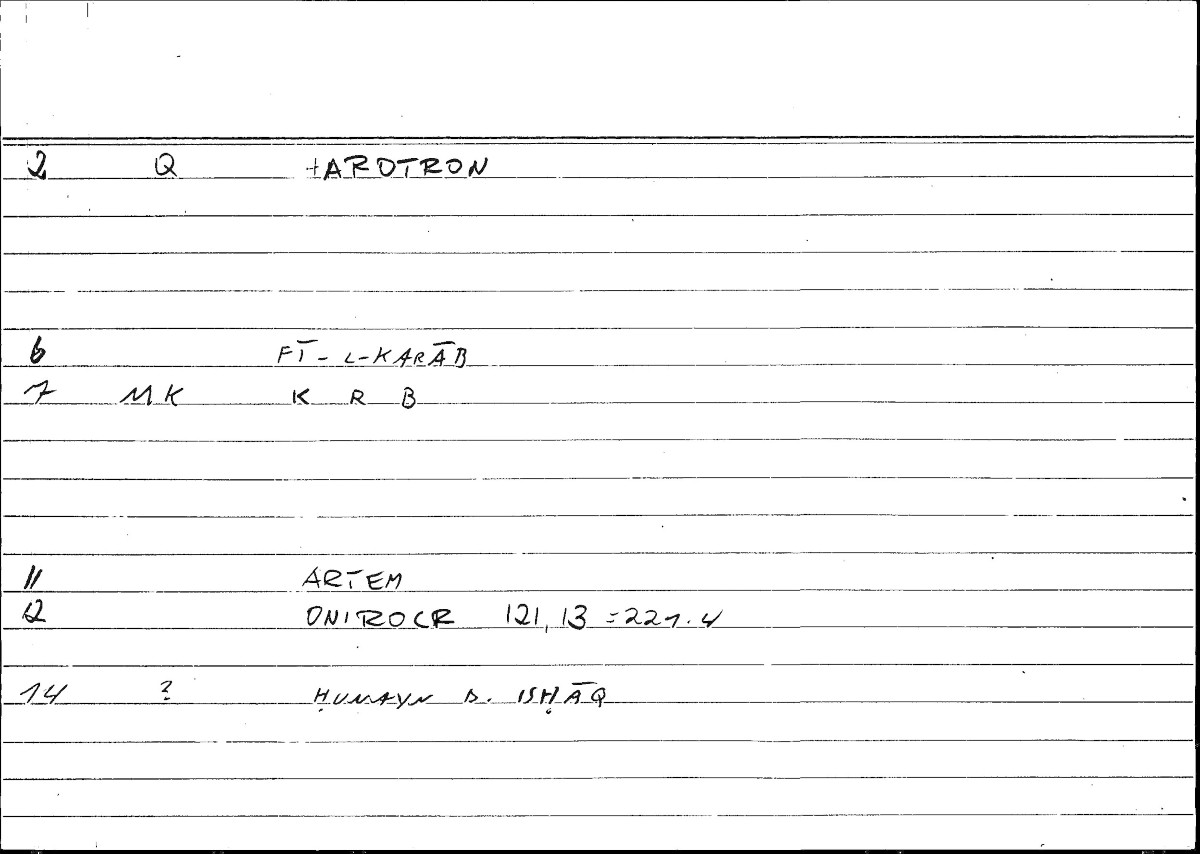 2 Q HAROTRON
6 FĪ-L-KARĀB
7 MK K R B
11 ARTEM
12 ONIROCR 121,13 = 221.4
14 ? ḤUNAYN B. ISḤĀQ